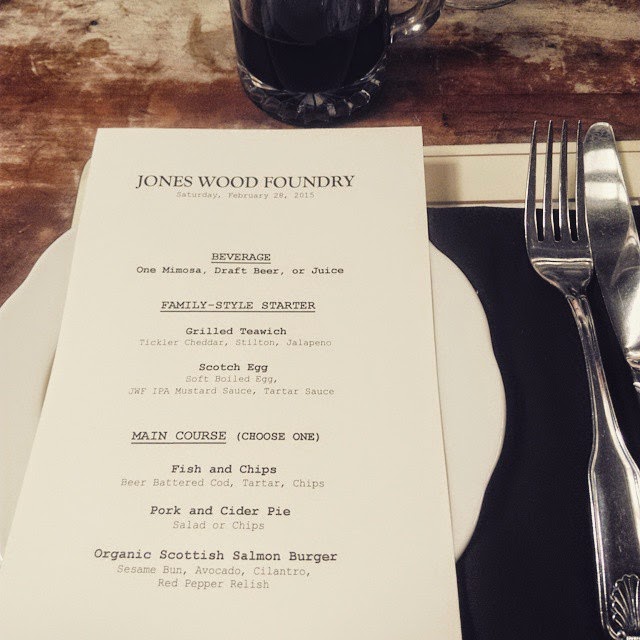 JONES WOOD FOUNDRY
Saturday, February 28, 2015
BEVERAGE
One Mimosa, Draft Beer, or Juice
FAMILY-STYLE STARTER
Grilled Teawich
Tickler Cheddar, Stilton, Jalapeno
Scotch Egg
Soft Boiled Egg,
JWF IPA Mustard Sauce, Tartar Sauce
MAIN COURSE (CHOOSE ONE)
Fish and Chips
Beer Battered Cod, Tartar, Chips
Pork and Cider Pie
Salad or Chips
Organic Scottish Salmon Burger
Sesame Bun, Avocado, Cilantro,
Red Pepper Relish